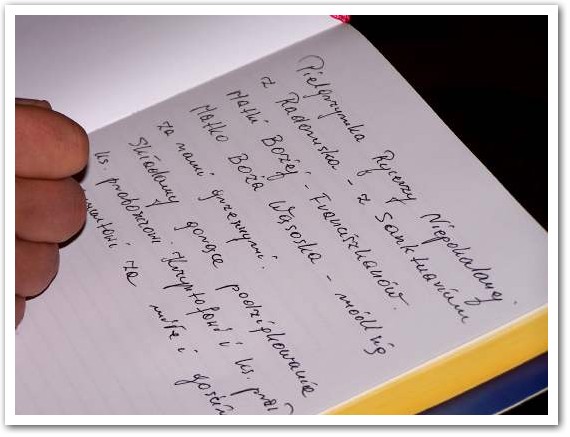 Pielgrzymka Rycerzy Niepokalanej
z Radomska - z Sanktuarium
Matki Bożej - Franciszkanów.
Matko Boża Wąsoska - módl się
za nami grzesznymi.
Składamy gorące podziękowania
ks. proboszczowi Krzysztofowi i ks.
za miłe i